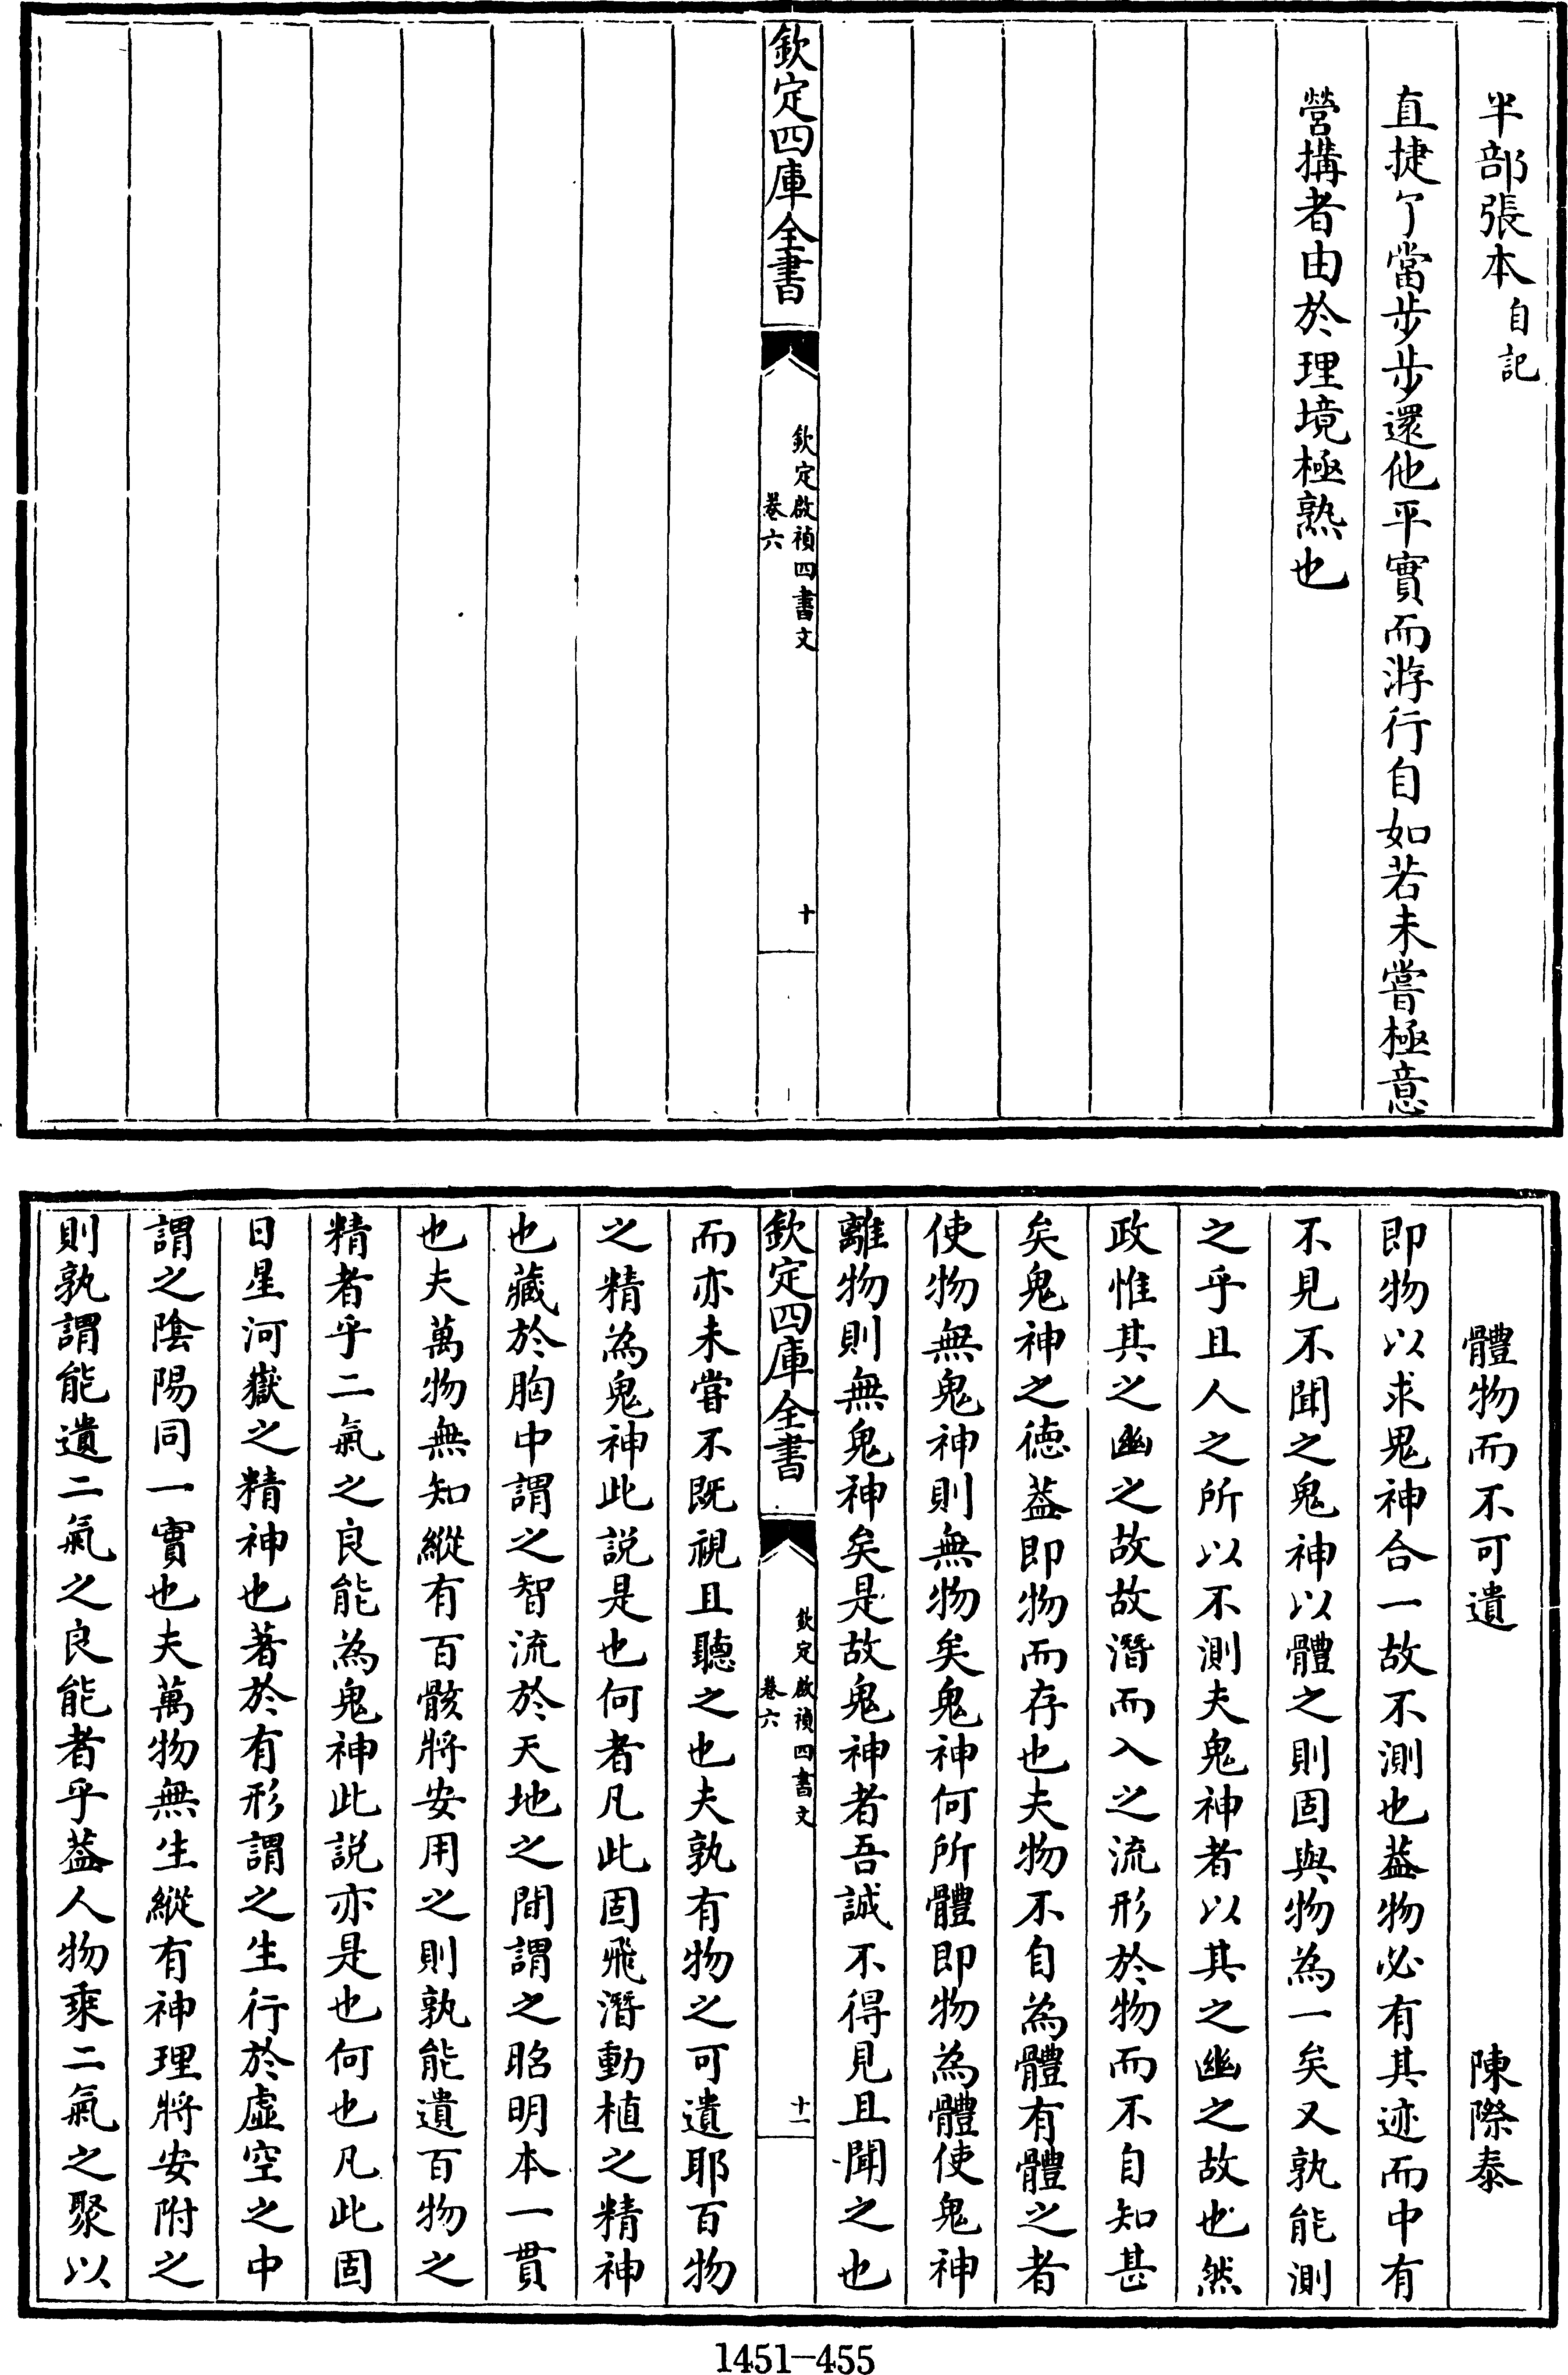 半部張本自記
直捷了當步步還他平實而游行自如若未嘗極意
營搆者由於理境極熟也
欽定四庫全書
欽定啟禎四書文
卷六
十
體物而不可遺 陳際泰
即物以求鬼神合一故不測也葢物必有其迹而中有
不見不聞之鬼神以體之則固與物為一矣又孰能測
之乎且人之所以不測夫鬼神者以其之幽之故也然
政惟其之幽之故故潛而入之流形於物而不自知甚
矣鬼神之德葢即物而存也夫物不自為體有體之者
使物無鬼神則無物矣鬼神何所體即物為體使鬼神
離物則無鬼神矣是故鬼神者吾誠不得見且聞之也
欽定四庫全書
欽定啟禎四書文
卷六
十一
而亦未甞不既視且聽之也夫孰有物之可遺耶百物
之精為鬼神此説是也何者凡此固飛潛動植之精神
也藏於胸中謂之智流於天地之間謂之昭明本一貫
也夫萬物無知縱有百骸將安用之則孰能遺百物之
精者乎二氣之良能為鬼神此説亦是也何也凡此固
日星河嶽之精神也著於有形謂之生行於虛空之中
謂之陰陽同一實也夫萬物無生縱有神理將安附之
則孰謂能遺二氣之良能者乎葢人物乘二氣之聚以
1451-455